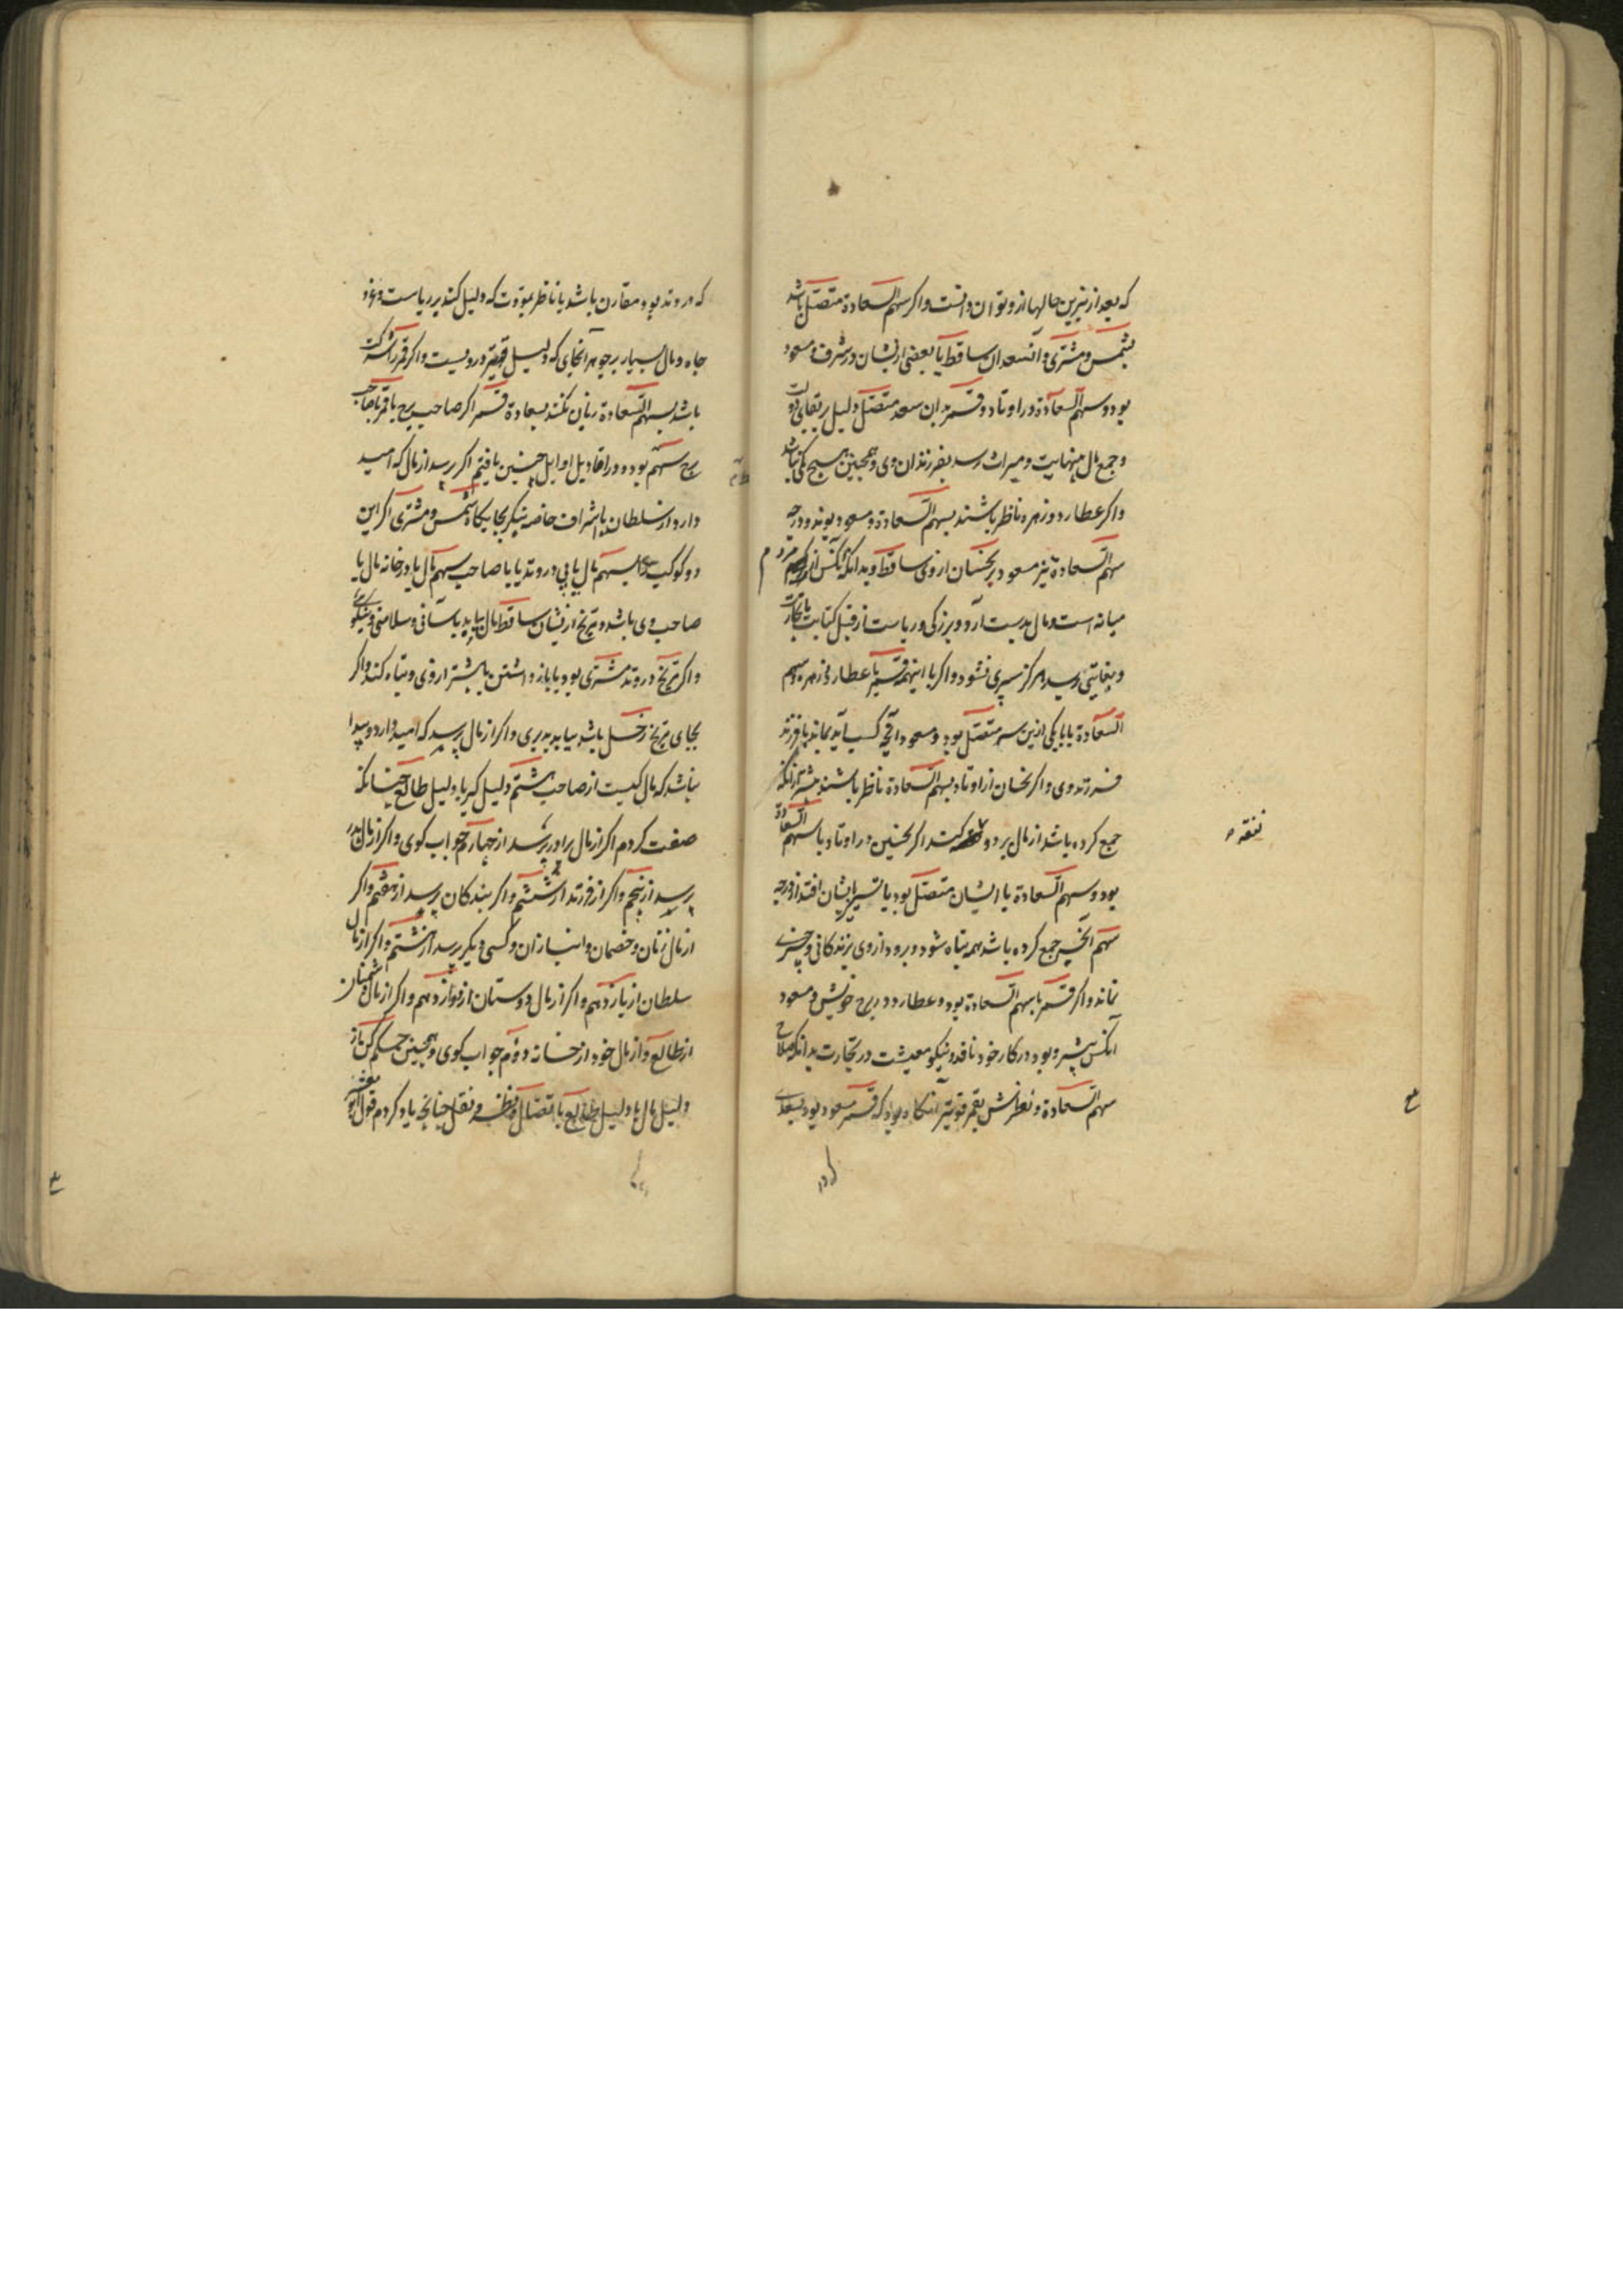 که بعد از نیرین حالها ازو توان دانست و اکر سهم السعادة متصل باشد
بشمس و مشتری و آنسعدان ساقط یا بعضی ازیشان در شرف و مسعود
بود و سهم السعادة در اوتاد و قمر بدان سعد متصل دلیل بر بقای دولت
و جمع مال بینهایت و میراث رسد بفرزندان وی و همچنین هیچ یکی نباشد
و اکر عطارد و زهره ناظر باشند بسهم السعادة و مسعود بوند و درجه
سهم السعادة نیز مسعود بر نحسان از وی ساقط و بدانکه آنکس از مردم
میانه است و مال بدست آرد و بزرکی و ریاست از قبل کتابت یا تجارت
و بغایتی رسد هرکز سپری نشود و اکر با اینهمه قمر با عطارد و زهره و سهم
السعادة یا با یکی ازین سه متصل بود و مسعود آنچه کسب آید بماند با فرزند
فرزند وی و اکر نحسان از اوتاد بسهم السعادة ناظر باشند بیشتر از آنکه
جمع کرده باشد از مال برود و نفقه کند اکر نحسین در اوتاد با سهم السعادة
بود و سهم السعادة با ایشان متصل بود یا تسییر بایشان افتد از درجه
سهم آنچه جمع کرده باشد همه تباه شود و برود از وی بزندکانی و چیزی
نماند و اکر قمر با سهم السعادة بود و عطارد در برج خویش و مسعود
آنکس پیشرو بود در کار خود نافذ و نیکو معیشت در تجارت بدانکه صلاح
سهم السعادة و نظرش بقمر قویتر آنکاه بود که قمر مسعود بود بسعدی
نفقه
که در وتد بود مقارن باشد یا ناظر بموّدت که دلیل کند بر ریاست و عز و
جاه و مال بسیار بر جوهر آنجای که دلیل قویتر دروست و اکر قمر را شرکت
باشد بسهم السعادة زیان نکند بسعادة قمر اکر صاحب برج یا قمر یا صاحب
برج سهم بود و در اقاویل اوایل چنین یافتیم اکر پرسد از مال که امید
دارد از سلطان یا اشراف خاصه نیکر بجایکاه شمس و مشتری اکر این
دو کوکب سهم مال یابی در وتد یا با صاحب سهم مال یا در خانه مال یا
صاحب وی باشد و مریخ ازیشان ساقط مال بیابد بآسانی و سلامتی و نیکو
و اکر مریخ در وتد مشتری بود یا باز داشتن یا بیشتر از وی و تباه کند و اکر
بجای مریخ زحل باشد بیابد بدیری و اکر از مال پرسد که امید دارد و پیدا
نباشد که مال کیست از صاحب هشتم دلیل کیر با دلیل طالع چنانکه
صفت کردم اکر از مال برادر پرسد از چهارم جواب کوی و اکر از مال پدر
پرسد از پنجم و اکر از فرزند از ششم و اکر بندکان پرسد از هفتم و اکر
از مال زنان و خصمان و انبازان و کسی دیکر پرسد از هشتم و اکر از مال
سلطان از یازدهم و اکر از مال دوستان از دوازدهم و اکر از مال دشمنان
از طالع و از مال خود از خانه دوم جواب کوی و همچنین حکم کن از
دلیل مال با دلیل طالع باتصال و نظر و نقل چنانچه یاد کردم قول ابو معشر